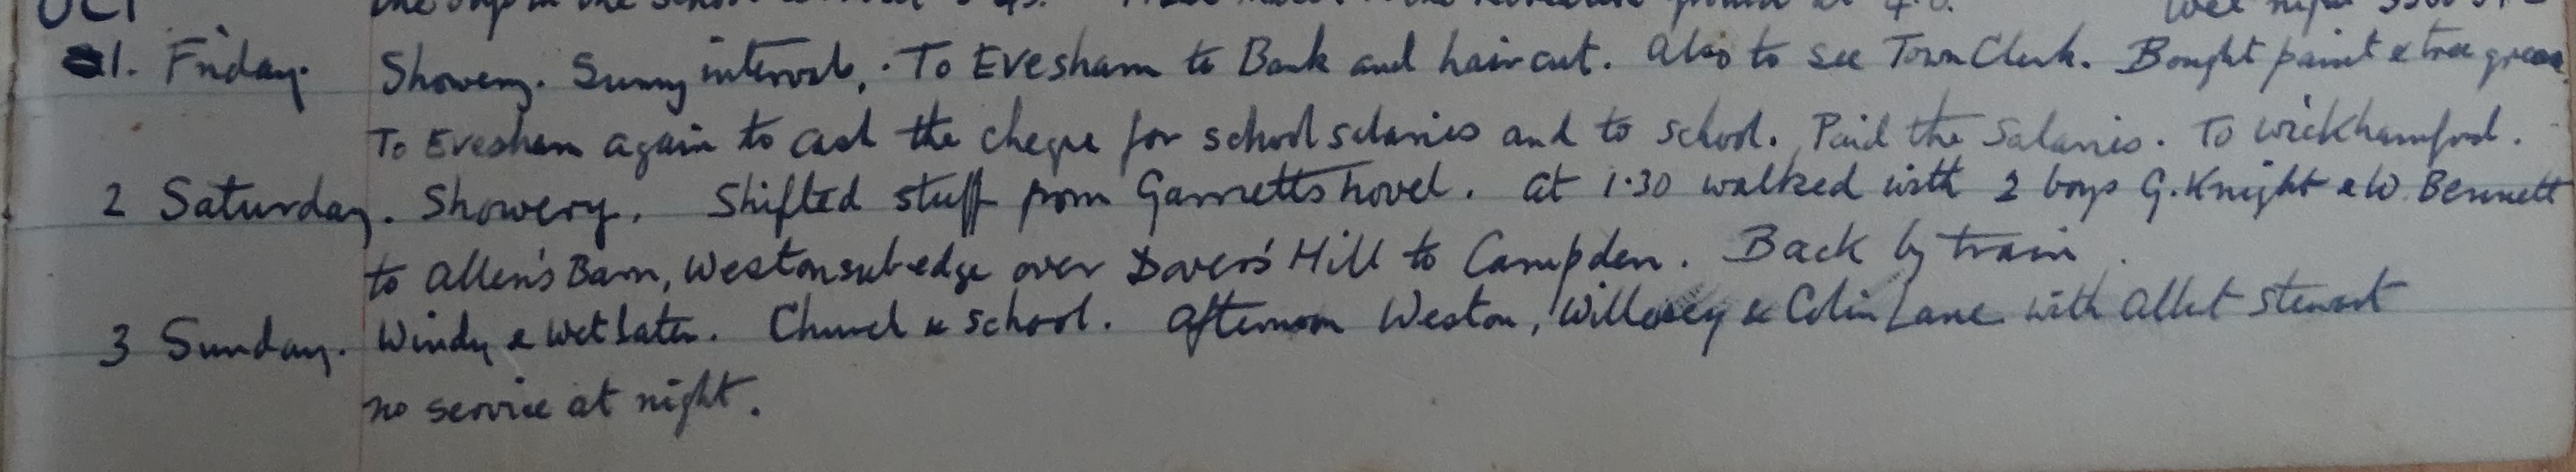 OCT
1. Friday. Showery. Sunny intervals. To Evesham to Bank and hair cut. Also to see Town Clerk. Bought paint & tree grease
To Evesham again to cash the cheque for school salaries and to school. Paid the salaries. To Wickhamford.
2 Saturday. Showery. Shifted stuff from Garretts hovel. At 1.30 walked with 2 boys G. Knight & W. Bennett
to Allen's Barn, Westonsubedge over Dover's Hill to Campden. Back by train.
3 Sunday. Windy & wet later. Church & school. Afternoon Weston, Willersey & Colin Lane with Stewart
no service at night.